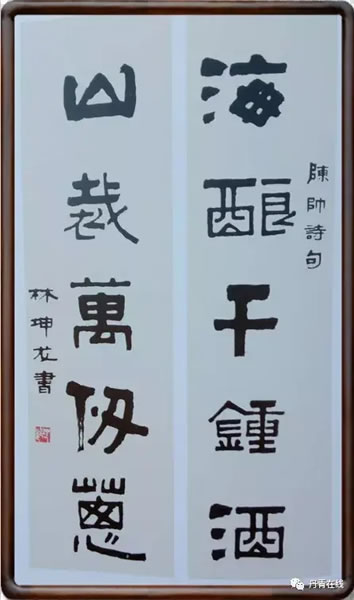 陳帥詩句
海酿千鍾酒
山栽萬仞蔥
林坤書
丹青在线